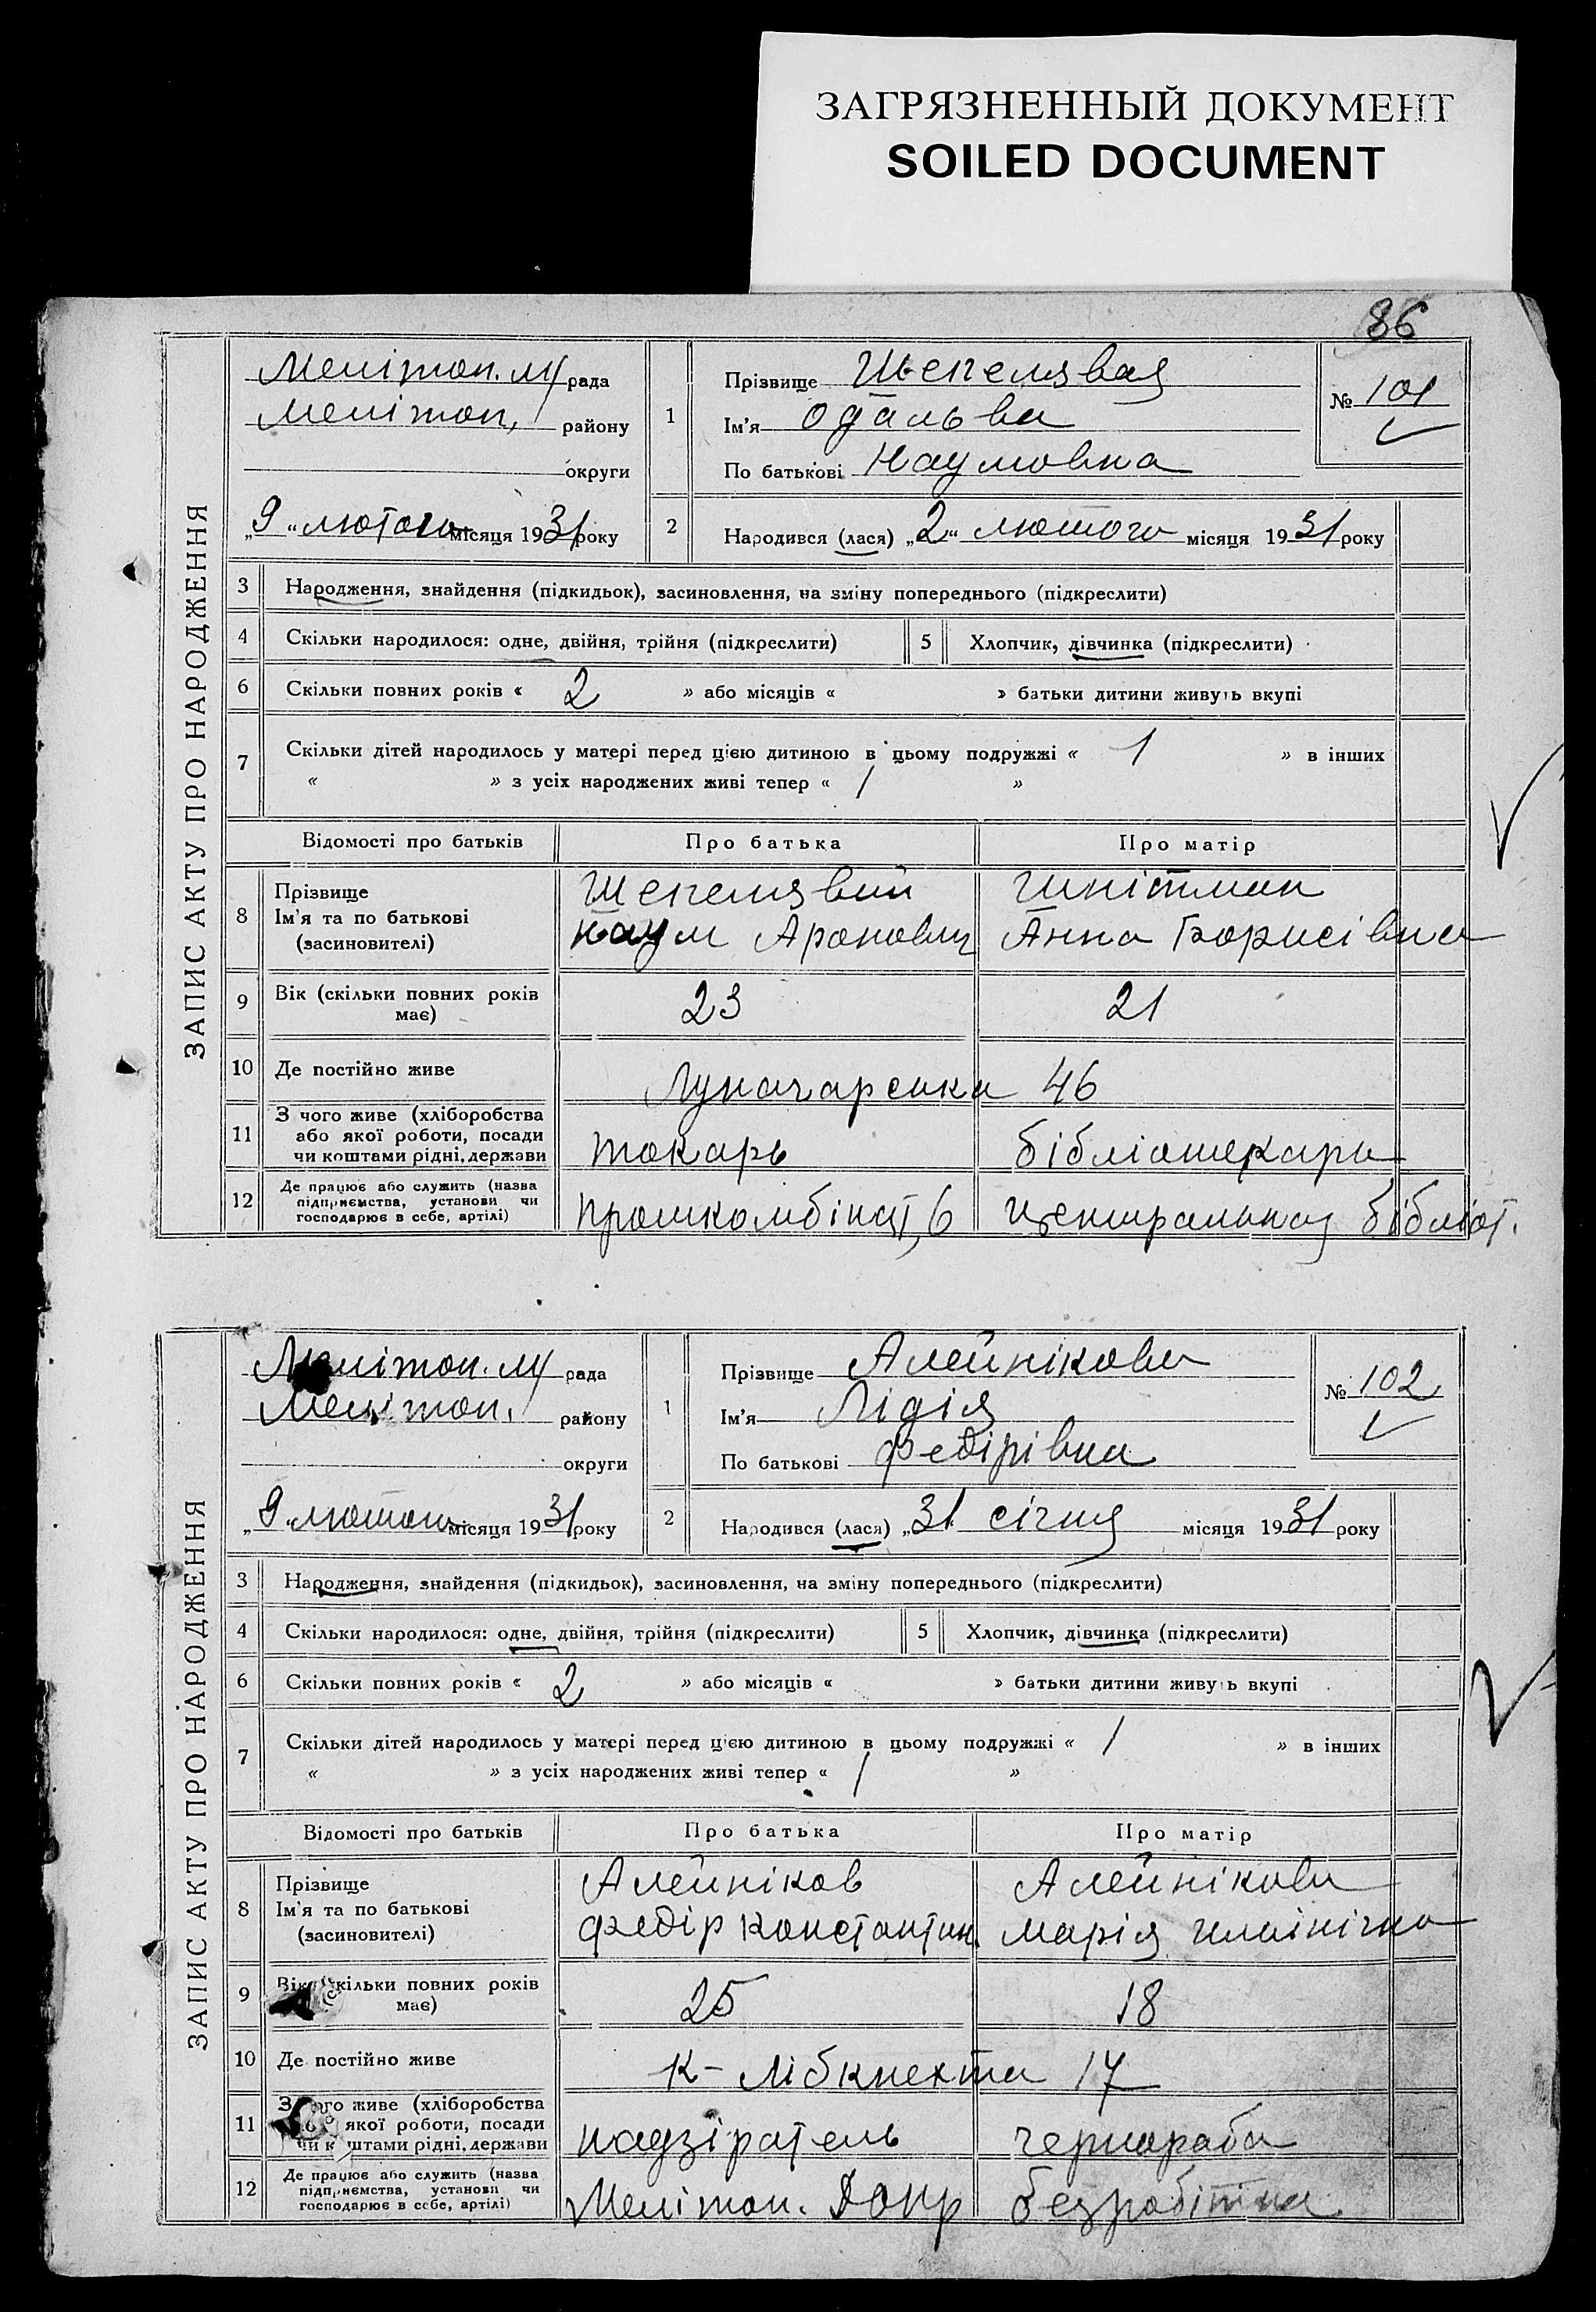 ЗАГРЯЗНЕННЫЙ ДОКУМЕНТ
SOILED DOCUMENT
86
ЗАПИС АКТУ ПРО НАРОДЖЕННЯ
Мелітоп. м/рада
Мелітоп. району
округи
„9“ лютого місяця 1931 року
1
Прізвище Шепелявая
Ім'я
По батькові Наумовна
№ 101
2
Народився (лася) „2“ лютого місяця 1931 року
3 Народження, знайдення (підкидьок), засиновлення, на зміну попереднього (підкреслити)
4 Скільки народилося: одне, двійня, трійня (підкреслити) 5 Хлопчик, дівчинка (підкреслити)
6 Скільки повних років « 2 » або місяців « » батьки дитини живуть вкупі
7 Скільки дітей народилось у матері перед цією дитиною в цьому подружжі « 1 » в інших
« » з усіх народжених живі тепер « 1 »
Відомості про батьків Про батька Про матір
8 Прізвище Шепелявий Шпітман
Ім'я та по батькові Наум Аронович Анна Борисівна
(засиновителі)
9 Вік (скільки повних років має) 23 21
10 Де постійно живе Луначарська 46
11 З чого живе (хліборобства
або якої роботи, посади
чи коштами рідні, держави токарь бібліотекарь
12 Де працює або служить (назва
підприємства, установи чи
господарює в себе, артілі) промкомбінат, 6 Центральная бібліот.
ЗАПИС АКТУ ПРО НАРОДЖЕННЯ
Мелітоп. м/рада
Мелітоп. району
округи
„9“ лютого місяця 1931 року
1
Прізвище Алейнікова
Ім'я Лідія
По батькові Федірівна
№ 102
2
Народився (лася) „31 січня місяця 1931 року
3 Народження, знайдення (підкидьок), засиновлення, на зміну попереднього (підкреслити)
4 Скільки народилося: одне, двійня, трійня (підкреслити) 5 Хлопчик, дівчинка (підкреслити)
6 Скільки повних років « 2 » або місяців « » батьки дитини живуть вкупі
7 Скільки дітей народилось у матері перед цією дитиною в цьому подружжі « 1 » в інших
« » з усіх народжених живі тепер « 1 »
Відомості про батьків Про батька Про матір
8 Прізвище Алейніков Алейнікова
Ім'я та по батькові Федір Константин. Марія Ильінічна
(засиновителі)
9 Вік (скільки повних років має) 25 18
10 Де постійно живе К-Лібкнехта 17
11 З чого живе (хліборобства
або якої роботи, посади
чи коштами рідні, держави надзіратель чернораба
12 Де працює або служить (назва
підприємства, установи чи
господарює в себе, артілі) Мелітоп. Допр безробітна